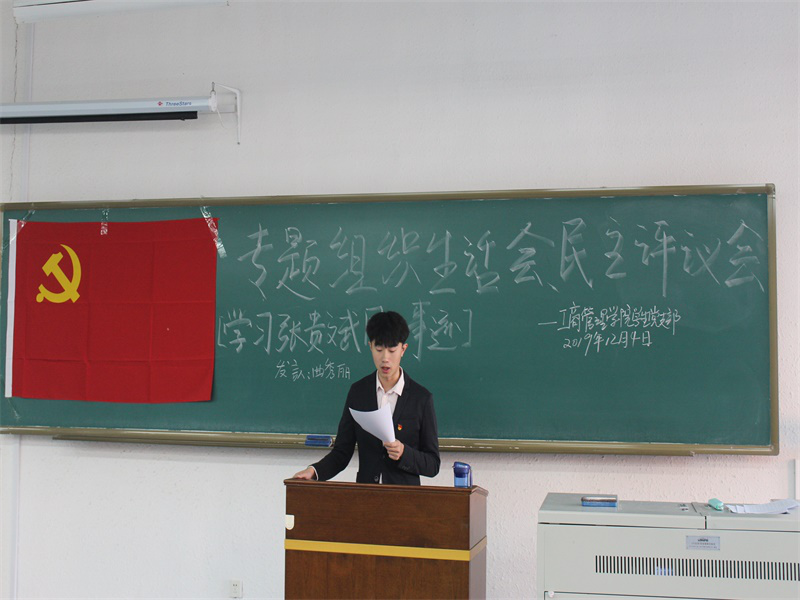 ThreeStars
专题组织生活会民主评议会
[学习张贵斌 事迹]
—工商管理学院学生党支部
2019年12月4日
发言:曲秀丽